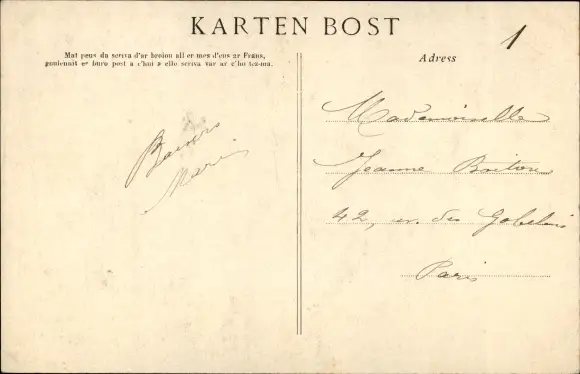 KARTEN BOST
1
Mat peus da scriva d'ar broiou all er mes d'eus ar Frans,
goulennit er buro post a c'hui a elle scriva var ar c'hostez-ma.
Adress
Baisers
Marie
Mademoiselle
Jeanne Breton
42, av. des Gobelins
Paris